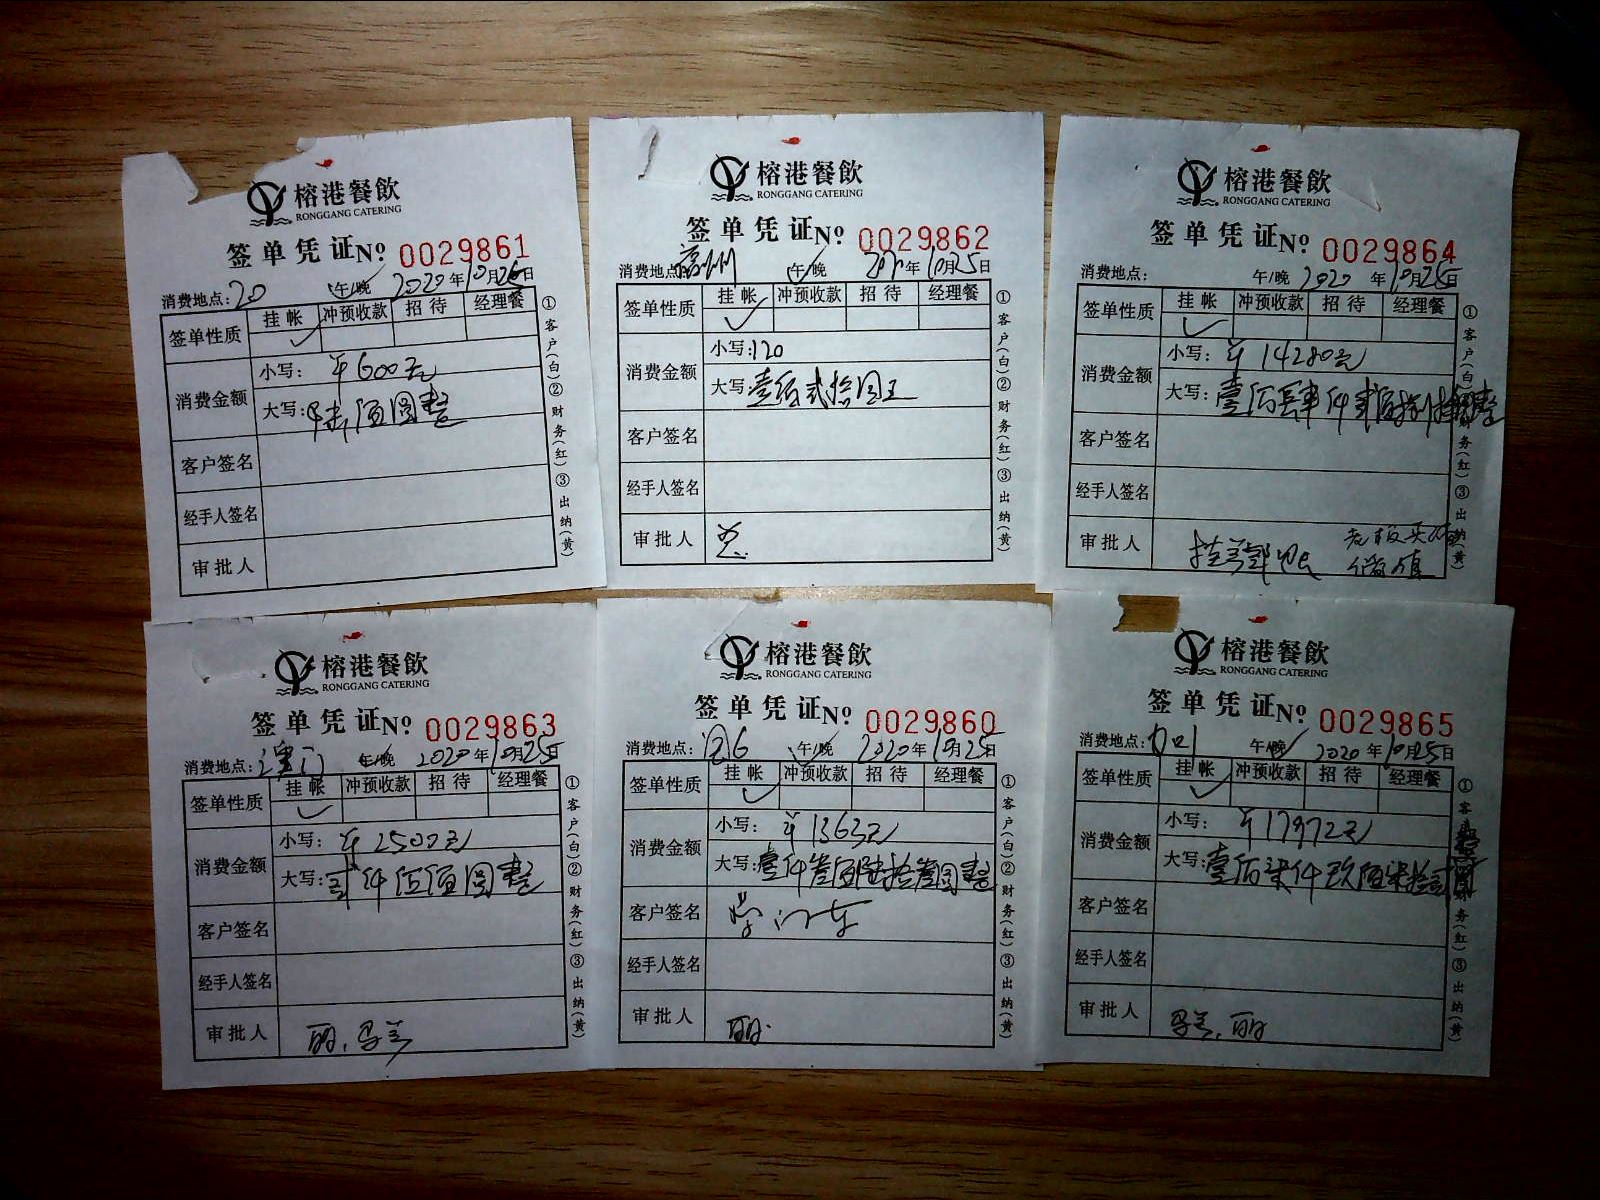 榕港餐飲
RONGGANG CATERING
签单凭证№ 0029861
消费地点: 20 午/晚 2020年10月26日
签单性质 挂帐 冲预收款 招待 经理餐
消费金额
小写: ¥600元
大写: 陆佰圆整
客户签名
经手人签名
审批人
①客户(白)②财务(红)③出纳(黄)
榕港餐飲
RONGGANG CATERING
签单凭证№ 0029862
消费地点: 午/晚 2020年10月25日
签单性质 挂帐 冲预收款 招待 经理餐
消费金额
小写: 120
大写: 壹佰贰拾圆正
客户签名
经手人签名
审批人
①客户(白)②财务(红)③出纳(黄)
榕港餐飲
RONGGANG CATERING
签单凭证№ 0029864
消费地点: 午/晚 2020年10月25日
签单性质 挂帐 冲预收款 招待 经理餐
消费金额
小写: ¥14280元
大写: 壹万肆仟贰佰捌拾圆整
客户签名
经手人签名
审批人
①客户(白)②财务(红)③出纳(黄)
榕港餐飲
RONGGANG CATERING
签单凭证№ 0029863
消费地点: 澳门 午/晚 2020年10月25日
签单性质 挂帐 冲预收款 招待 经理餐
消费金额
小写: ¥2500元
大写: 贰仟伍佰圆整
客户签名
经手人签名
审批人 丽.
①客户(白)②财务(红)③出纳(黄)
榕港餐飲
RONGGANG CATERING
签单凭证№ 0029860
消费地点: 午/晚 2020年10月25日
签单性质 挂帐 冲预收款 招待 经理餐
消费金额
小写: ¥1363元
大写: 壹仟叁佰陆拾叁圆整
客户签名
经手人签名
审批人 丽.
①客户(白)②财务(红)③出纳(黄)
榕港餐飲
RONGGANG CATERING
签单凭证№ 0029865
消费地点: 午/晚 2020年10月25日
签单性质 挂帐 冲预收款 招待 经理餐
消费金额
小写: ¥17972元
大写: 壹万柒仟玖佰柒拾贰圆整
客户签名
经手人签名
审批人 丽
①客户(白)②财务(红)③出纳(黄)